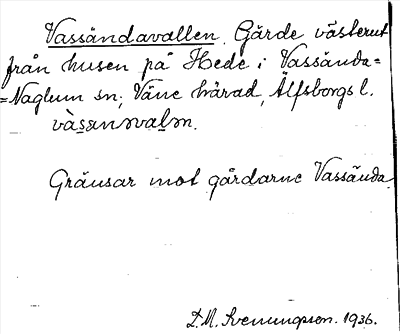 Vassändavallen. Gärde västerut
från husen på Hede i Vassända=
=Naglum sn; Väne härad, Älfsborgs l.
Gränsar mot gårdarne Vassända.
D.M. Svenungsson. 1936.